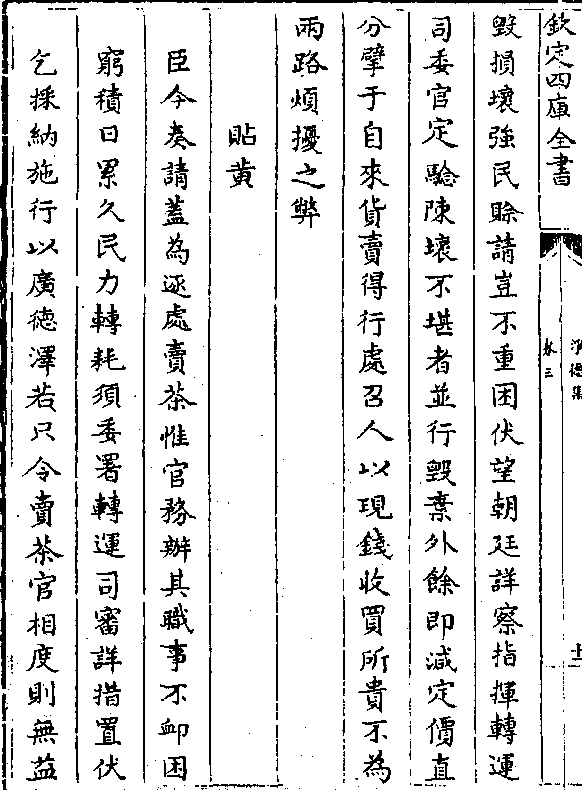 欽定四庫全書
淨德集
卷三
毀損壞強民賒請豈不重困伏望朝廷詳察指揮轉運
司委官定驗陳壞不堪者並行毀棄外餘即減定價直
分擘于自來貨賣得行處召人以現錢收買所貴不為
兩路煩擾之弊
貼黄
臣今奏請蓋為逐處賣茶惟官務辦其職事不卹困
窮積日累久民力轉耗須委署轉運司審詳措置伏
乞採納施行以廣德澤若只令賣茶官相度則無益